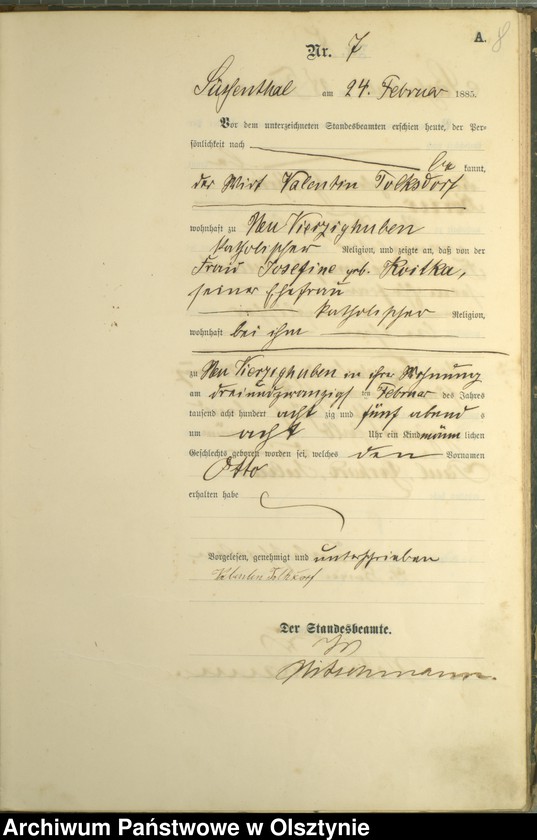 A.
8
Nr. 7
Süssenthal am 24. Februar 1885.
Vor dem unterzeichneten Standesbeamten erschien heute, der Per-
sönlichkeit nach
be kannt,
der Wirt Valentin Tolksdorf
wohnhaft zu Neu Vierzighuben
katholischer Religion, und zeigte an, daß von der
Frau Josefine geb. Koitka,
seiner Ehefrau
katholischer Religion,
wohnhaft bei ihm
zu Neu Vierzighuben in ihrer Wohnung
am dreiundzwanzigsten Februar des Jahres
tausend acht hundert acht zig und fünf abend s
um acht Uhr ein Kind männ lichen
Geschlechts geboren worden sei, welches den Vornamen
Otto
erhalten habe
Vorgelesen, genehmigt und unterschrieben
Valentin Tolksdorf
Der Standesbeamte.
Archiwum Państwowe w Olsztynie